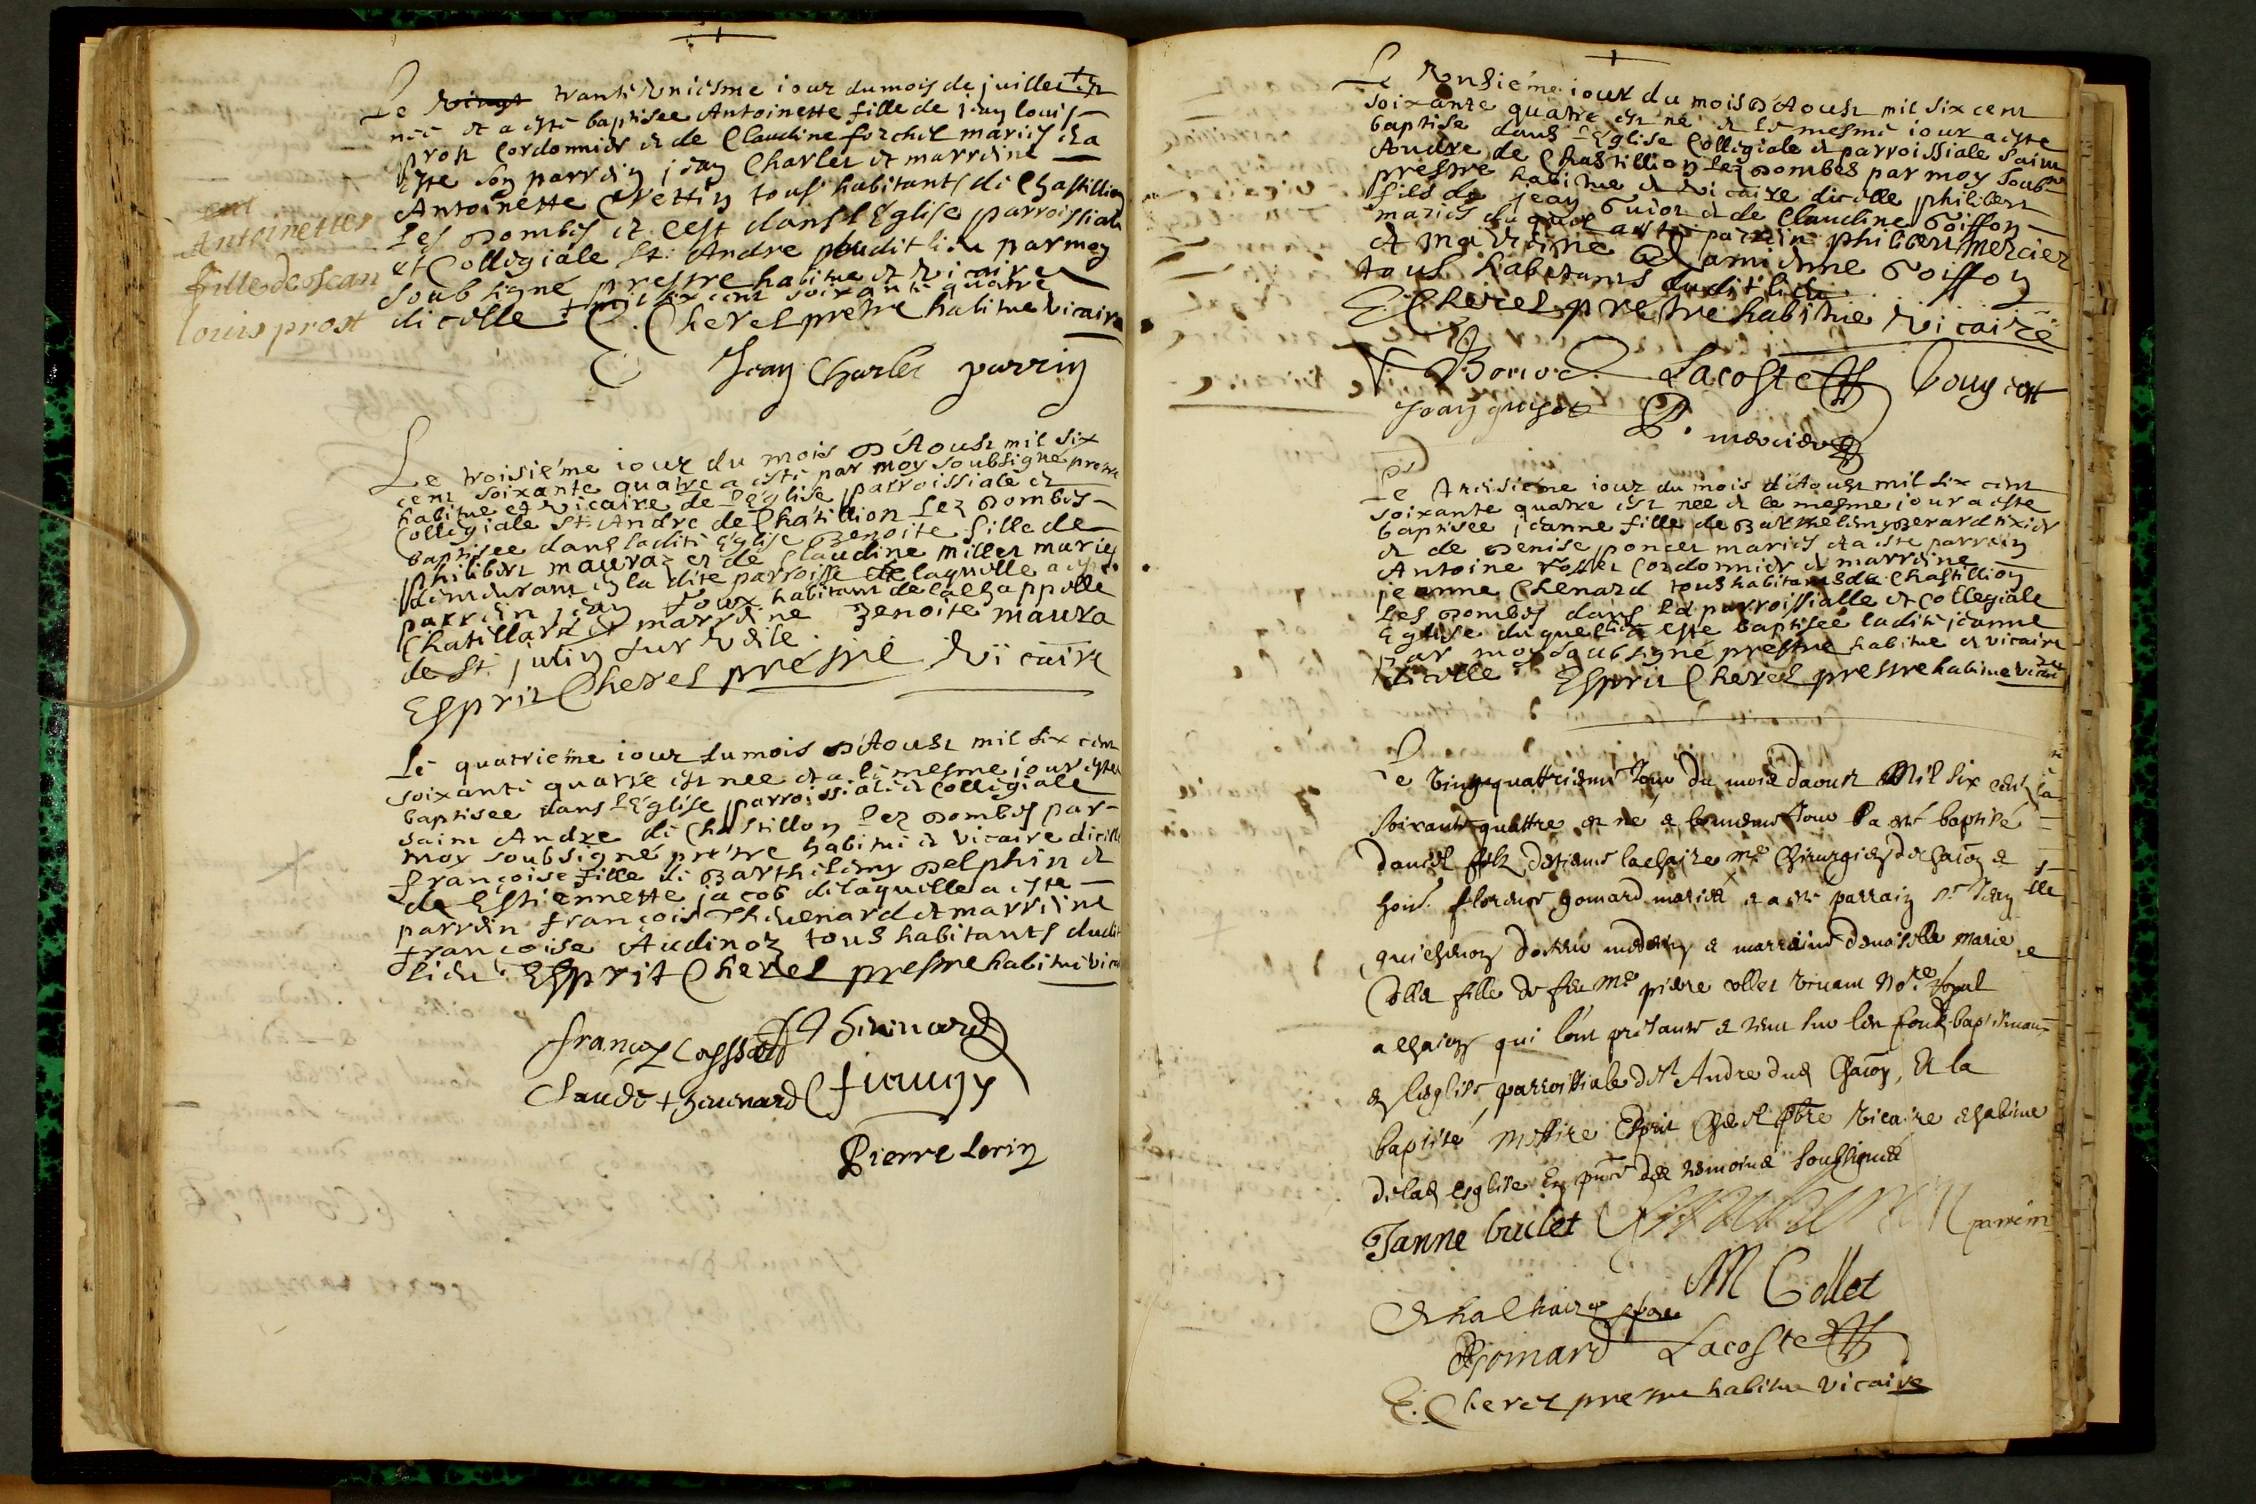 Le vingt trante Uniesme iour du mois de juillet + est
née et a esté baptisee Antoinette fille de jean louis
prost Cordonnier et de Claudine forchet mariés et a
esté son parrein jean Charlet et marreine
Antoinette Crettin tous habitants de Chastillion
Les Dombes et c'est dans l'Eglise parroissiale
et Collegiale St. Andre dudit lieu par moy
soub signé prestre habitue et vicaire
dicelle + mil six cent soixante quatre
E. Cherel prestre habitue vicaire
Jean Charlet parrin
Antoinette
fille de Jean
louis prost
Le troisiéme iour du mois D'Aoust mil six
cent soixante quatre a esté par moy soubsigné prestre
habitue et vicaire de l'église parroissiale et
Collegiale St. Andre de Chatillion Lez Dombes
baptisee dans ladite Eglise Benoite fille de
philibert mauraz et de Claudine millet mariés
demeurant en la dite parroisse de laquelle a esté
parrein jean Joux habitant de la Chappelle
Chatillard et marreine Benoite maura
de St. julin sur veile
Esprit Cherel prestre vicaire
Le quatrieme iour du mois D'Aoust mil six cent
soixante quatre est nee et a le mesme iour esté
baptisee dans l'Eglise parroissiale et Collegiale
saint Andre de Chastillon lez Dombes par
moy soubsigné prestre habitué et vicaire dicelle
françoise fille de Barthelemy Delphin et
de Estiennette jacob de laquelle a este
parrein françois Thevenard et marreine
françoise Audinoz tous habitants dudit
lieu. Esprit Cherel prestre habitué vicaire
françois Cassat Thevenard
Claude Thevenard
Pierre Lorin
Le Onzieme iour du mois D'Aoust mil six cent
soixante quatre est né et le mesme iour a esté
baptise dans l'Eglise Collegiale et parroissiale saint
Andre de Chastillion lez Dombes par moy soub né
prestre habitue et vicaire dicelle philibert
fils de jean Guiot et de Claudine Goiffon
mariés duquel a esté parrein philibert mercier
et marreine Goiffon
tous habitants dudit lieu
E. Cherel prestre habitue vicaire
Lacoste
P. mercier
Le treisieme iour du mois d'Aoust mil six cent
soixante quatre est nee et le mesme iour a esté
baptisee jeanne fille de Barthelemy Berard tixier
et de Denise poncet mariés et a esté parrein
Antoine rosset Cordonnier et marreine
jeanne Chenard tous habitants de Chastillion
Les Dombes dans La parroissialle et Collegiale
Eglise duquel lieu a esté baptisee ladite jeanne
par moy soubsigné prestre habitue et vicaire
dicelle Esprit Cherel prestre habitue vicaire
Le vingt quattriesme Jour du mois daoust Mil six cent
soixante quattre est né et le mesme Jour a esté baptisé
daniel filz destienne lachaire me Chirurgien de chaon et
hon. florence gomard mariés et a esté parrain sr Jean
guichenon docteur medecin et marraine demoiselle marie
Collet fille de feu me pierre collet vivant Nore royal
a chaon qui lont presanté et tenu sur les fondz baptismaux
en leglise parroissiale de st Andre dud Chaon, Et la
baptisé messire Esprit Cherel pbre vicaire et habitue
de lad esglise En pnce des tesmoins soussignés
Janne bullet parrein
M Collet
Gomard Lacoste
E. Cherel prestre habitue vicaire